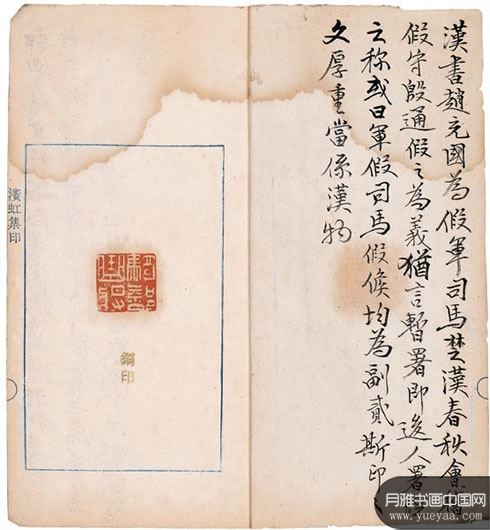 漢書趙充國為假軍司馬楚漢春秋會稽
假守殷通假之為義猶言暫署即後人署
之称或曰軍假司馬假候均為副貳斯印
文厚重當係漢物
銅印
濱虹集印
月雅书画中国网
www.yueyaa.com